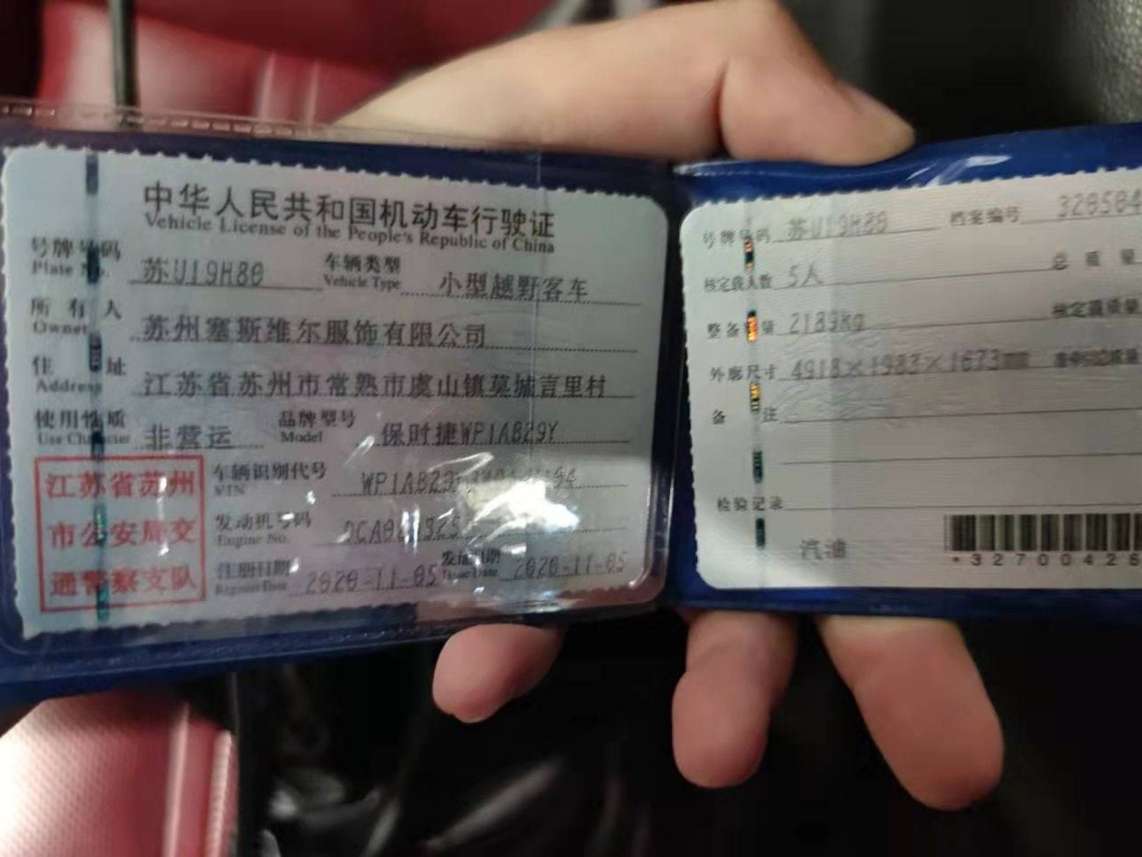 中华人民共和国机动车行驶证
Vehicle License of the People's Republic of China
号牌号码
Plate No.
苏U19H80
车辆类型
Vehicle Type
小型越野客车
所有人
Owner
苏州塞斯维尔服饰有限公司
住址
Address
江苏省苏州市常熟市虞山镇莫城言里村
使用性质
Use Character
非营运
品牌型号
Model
保时捷WP1AB29Y
江苏省苏州
市公安局交
通警察支队
车辆识别代号
VIN
发动机号码
Engine No.
注册日期
Register Date
2020-11-05
发证日期
Issue Date
2020-11-05
号牌号码
苏U19H80
档案编号
核定载人数
5人
总质量
整备质量
2189kg
核定载质量
外廓尺寸
4918×1983×1673mm
备注
检验记录
汽油